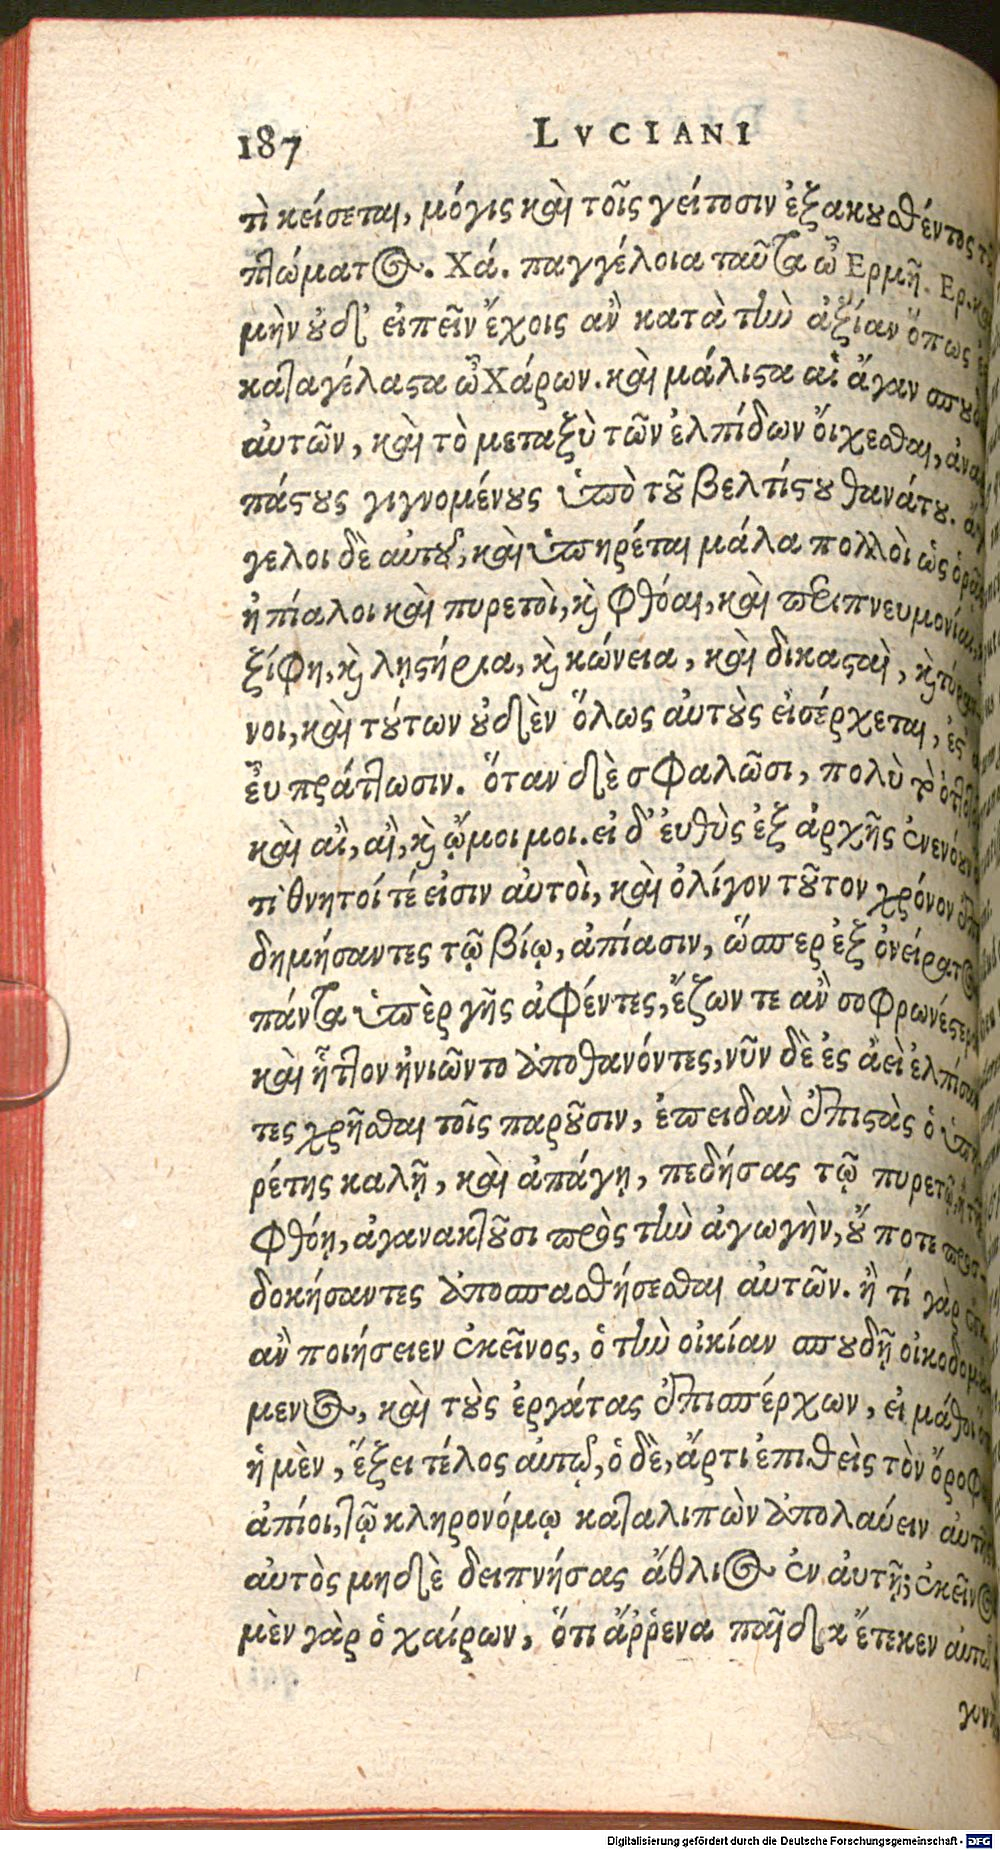 187 LVCIANI
τὶ κείσεται, μόγις καὶ τοῖς γείτοσιν ἐξακουσθέντος
πτώματος. Χά. παγγέλοια ταῦτα ὦ Ερμῆ. Ερ.
μὴν οὐδ' εἰπεῖν ἔχοις ἂν κατὰ τὴν ἀξίαν ὅπως
καταγέλαστα ὦ Χάρων. καὶ μάλιστα αἱ ἄγαν
αὐτῶν, καὶ τὸ μεταξὺ τῶν ἐλπίδων οἴχεσθαι,
πάστους γιγνομένους ὑπὸ τοῦ βελτίστου θανάτου.
γελοι δὲ αὐτοῦ, καὶ ὑπηρέται μάλα πολλοὶ ὡς
ἠπίαλοι καὶ πυρετοὶ, καὶ φθόαι, καὶ περιπνευμονίαι,
ξίφη, καὶ λῃστήρια, καὶ κώνεια, καὶ δικασταὶ, καὶ
νοι, καὶ τούτων οὐδὲν ὅλως αὐτοὺς εἰσέρχεται,
εὖ πράττωσιν. ὅταν δὲ σφαλῶσι, πολὺ τὸ
καὶ αἲ, αἲ, καὶ ᾤμοι μοι. εἰ δ' εὐθὺς ἐξ ἀρχῆς
τι θνητοί τέ εἰσιν αὐτοὶ, καὶ ὀλίγον τοῦτον χρόνον
δημήσαντες τῷ βίῳ, ἀπίασιν, ὥσπερ ἐξ ὀνείρατος
πάντα ὑπὲρ γῆς ἀφέντες, ἔζων τε ἂν
καὶ ἧττον ἠνιῶντο ἀποθανόντες, νῦν δὲ ἐς ἀεὶ
τες χρῆσθαι τοῖς παροῦσιν, ἐπειδὰν ἐπιστὰς ὁ ὑπη
ρέτης καλῇ, καὶ ἀπάγῃ, πεδήσας τῷ πυρετῷ
φθόῃ, ἀγανακτοῦσι πρὸς τὴν ἀγωγὴν, οὔ ποτε προσ-
δοκήσαντες ἀποσπασθήσεσθαι αὐτῶν. ἢ τί γὰρ
ἂν ποιήσειεν ἐκεῖνος, ὁ τὴν οἰκίαν σπουδῇ
μενος, καὶ τοὺς ἐργάτας ἐπισπέρχων, εἰ μάθοι
ἡ μὲν, ἕξει τέλος αὐτῷ, ὁ δὲ, ἄρτι ἐπιθεὶς τὸν
ἀπίοι, τῷ κληρονόμῳ καταλιπὼν ἀπολαύειν αὐτῆς
αὐτὸς μηδὲ δειπνήσας ἄθλιος ἐν αὐτῇ; ἐκεῖνος
μὲν γὰρ ὁ χαίρων, ὅτι ἄῤῥενα παῖδα ἔτεκεν αὐτῷ
Digitalisierung gefördert durch die Deutsche Forschungsgemeinschaft - DFG